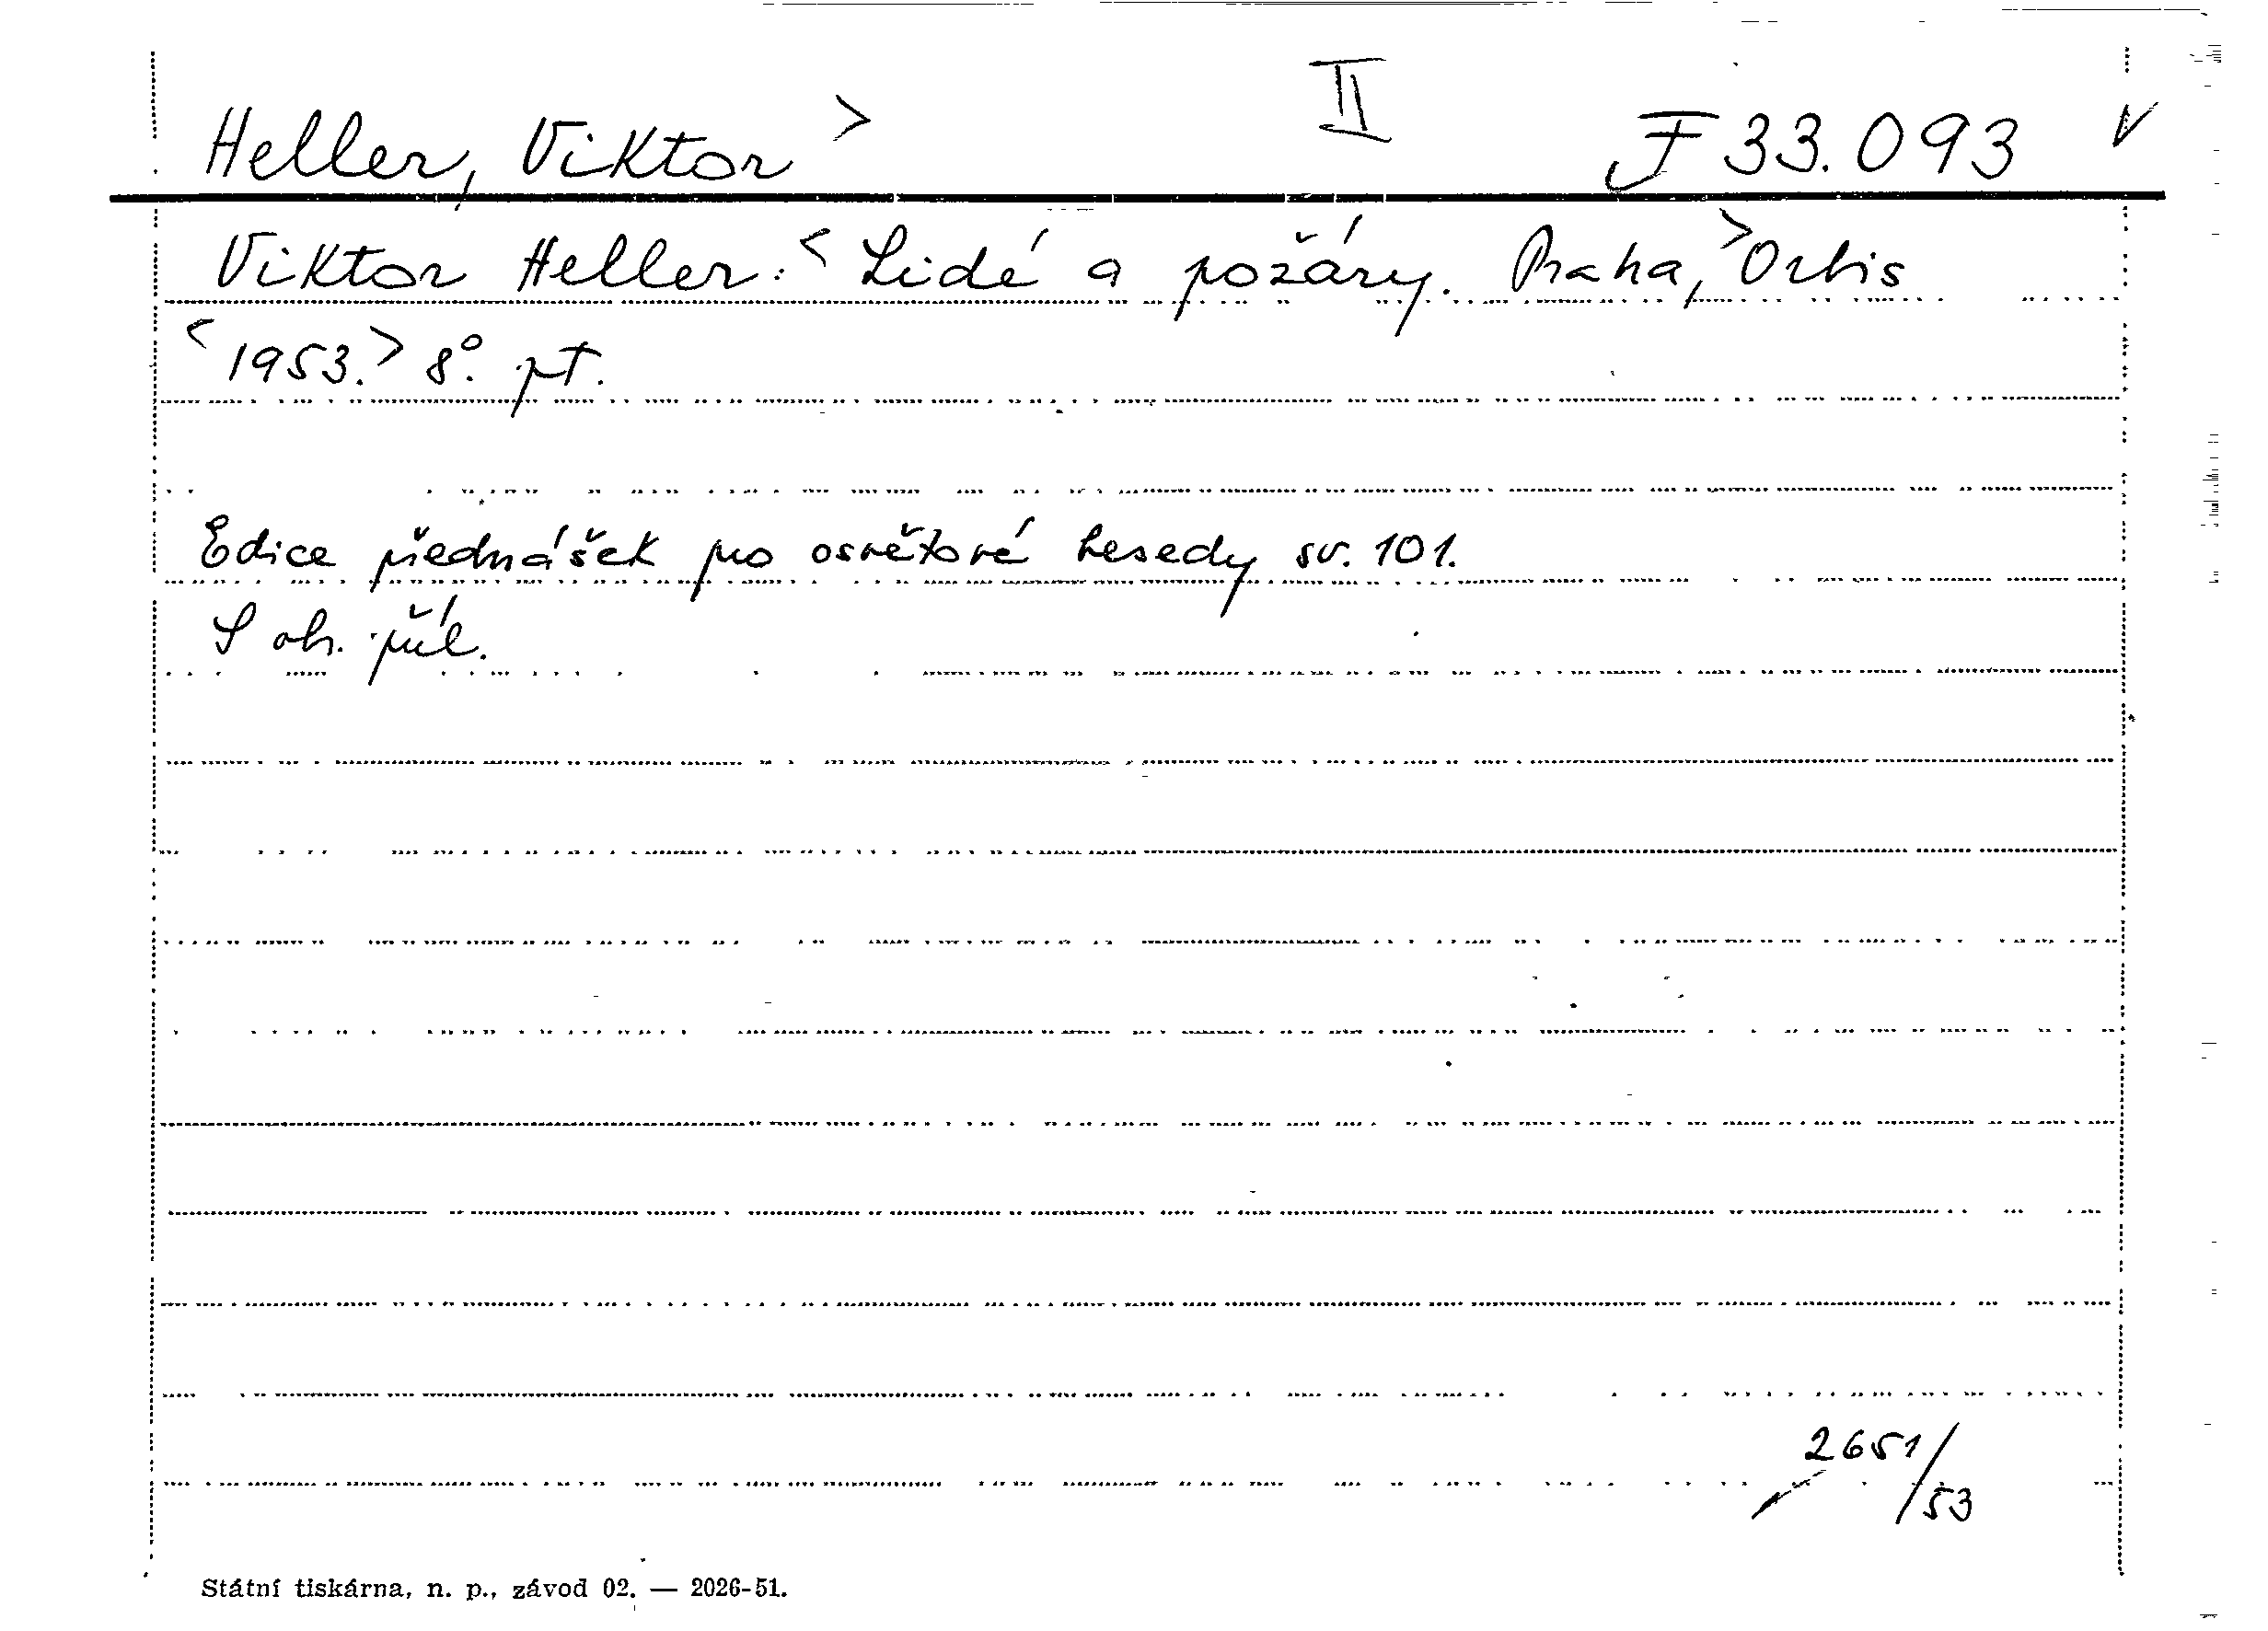 Heller, Viktor > II F 33.093 V
Viktor Heller: < Lidé a požáry. Praha, > Orbis
< 1953. > 8°. pt.
Edice přednášek pro osvětové besedy sv. 101.
S obr. příl.
2651/53
Státní tiskárna, n. p., závod 02. — 2026-51.